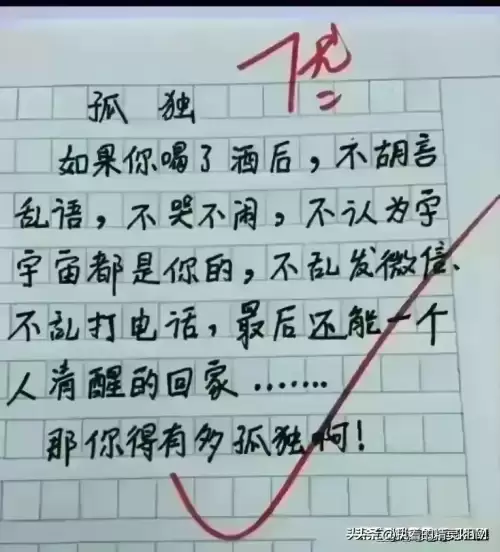 优
孤 独
如果你喝了酒后，不胡言
乱语，不哭不闹，不认为宇
宇宙都是你的，不乱发微信、
不乱打电话，最后还能一个
人清醒的回家.......
那你得有多孤独啊！
头条